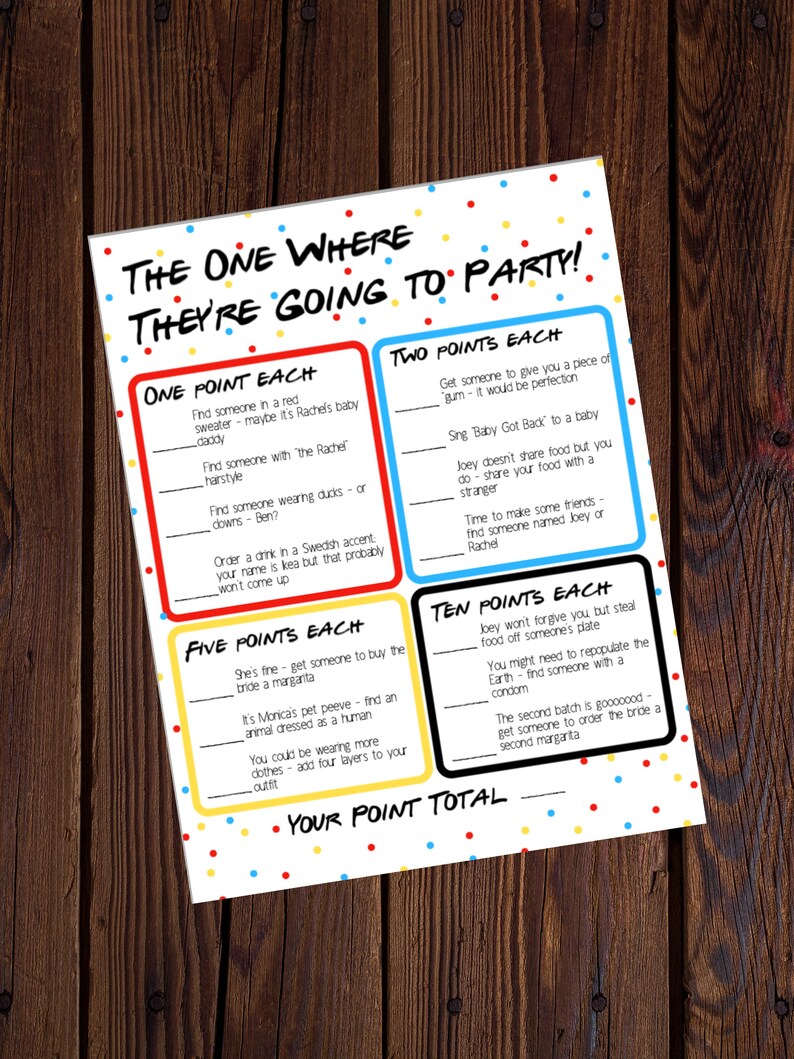 THE ONE WHERE
THEY'RE GOING TO PARTY!
ONE POINT EACH
Find someone in a red
sweater - maybe it's Rachel's baby
_______daddy
Find someone with "the Rachel"
_______hairstyle
Find someone wearing ducks - or
_______clowns - Ben?
Order a drink in a Swedish accent:
your name is Ikea but that probably
_______won't come up
TWO POINTS EACH
Get someone to give you a piece of
_______"gum - it would be perfection
_______Sing "Baby Got Back" to a baby
Joey doesn't share food but you
do - share your food with a
_______stranger
Time to make some friends -
find someone named Joey or
_______Rachel
FIVE POINTS EACH
She's fine - get someone to buy the
_______bride a margarita
It's Monica's pet peeve - find an
_______animal dressed as a human
You could be wearing more
clothes - add four layers to your
_______outfit
TEN POINTS EACH
Joey won't forgive you, but steal
_______food off someone's plate
You might need to repopulate the
Earth - find someone with a
_______condom
The second batch is gooooood -
get someone to order the bride a
_______second margarita
YOUR POINT TOTAL ____